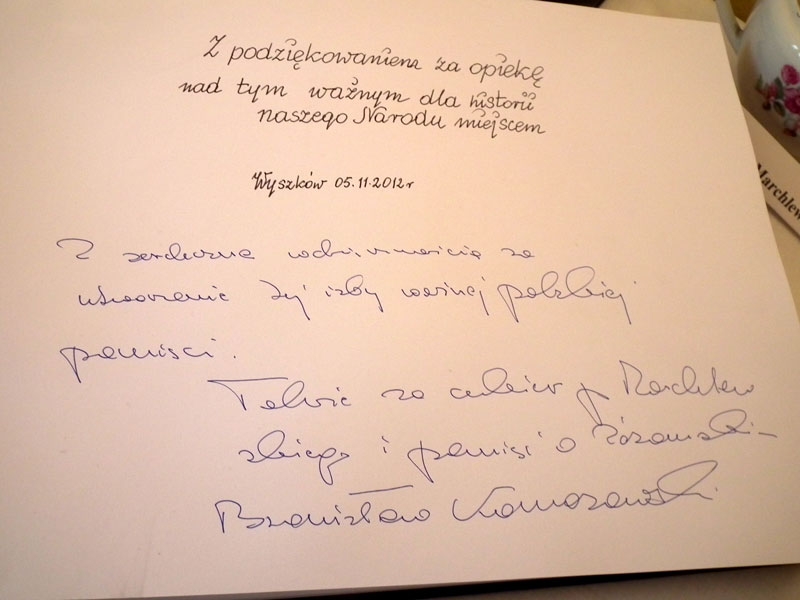 Z podziękowaniem za opiekę
nad tym ważnym dla historii
naszego Narodu miejscem
Wyszków 05.11.2012r
Z serdeczną wdzięcznością za
utworzenie tej izby ważnej polskiej
pamięci.
Także za
skiego i pamięć o Różanski-
Bronisław Komorowski
Marchlew